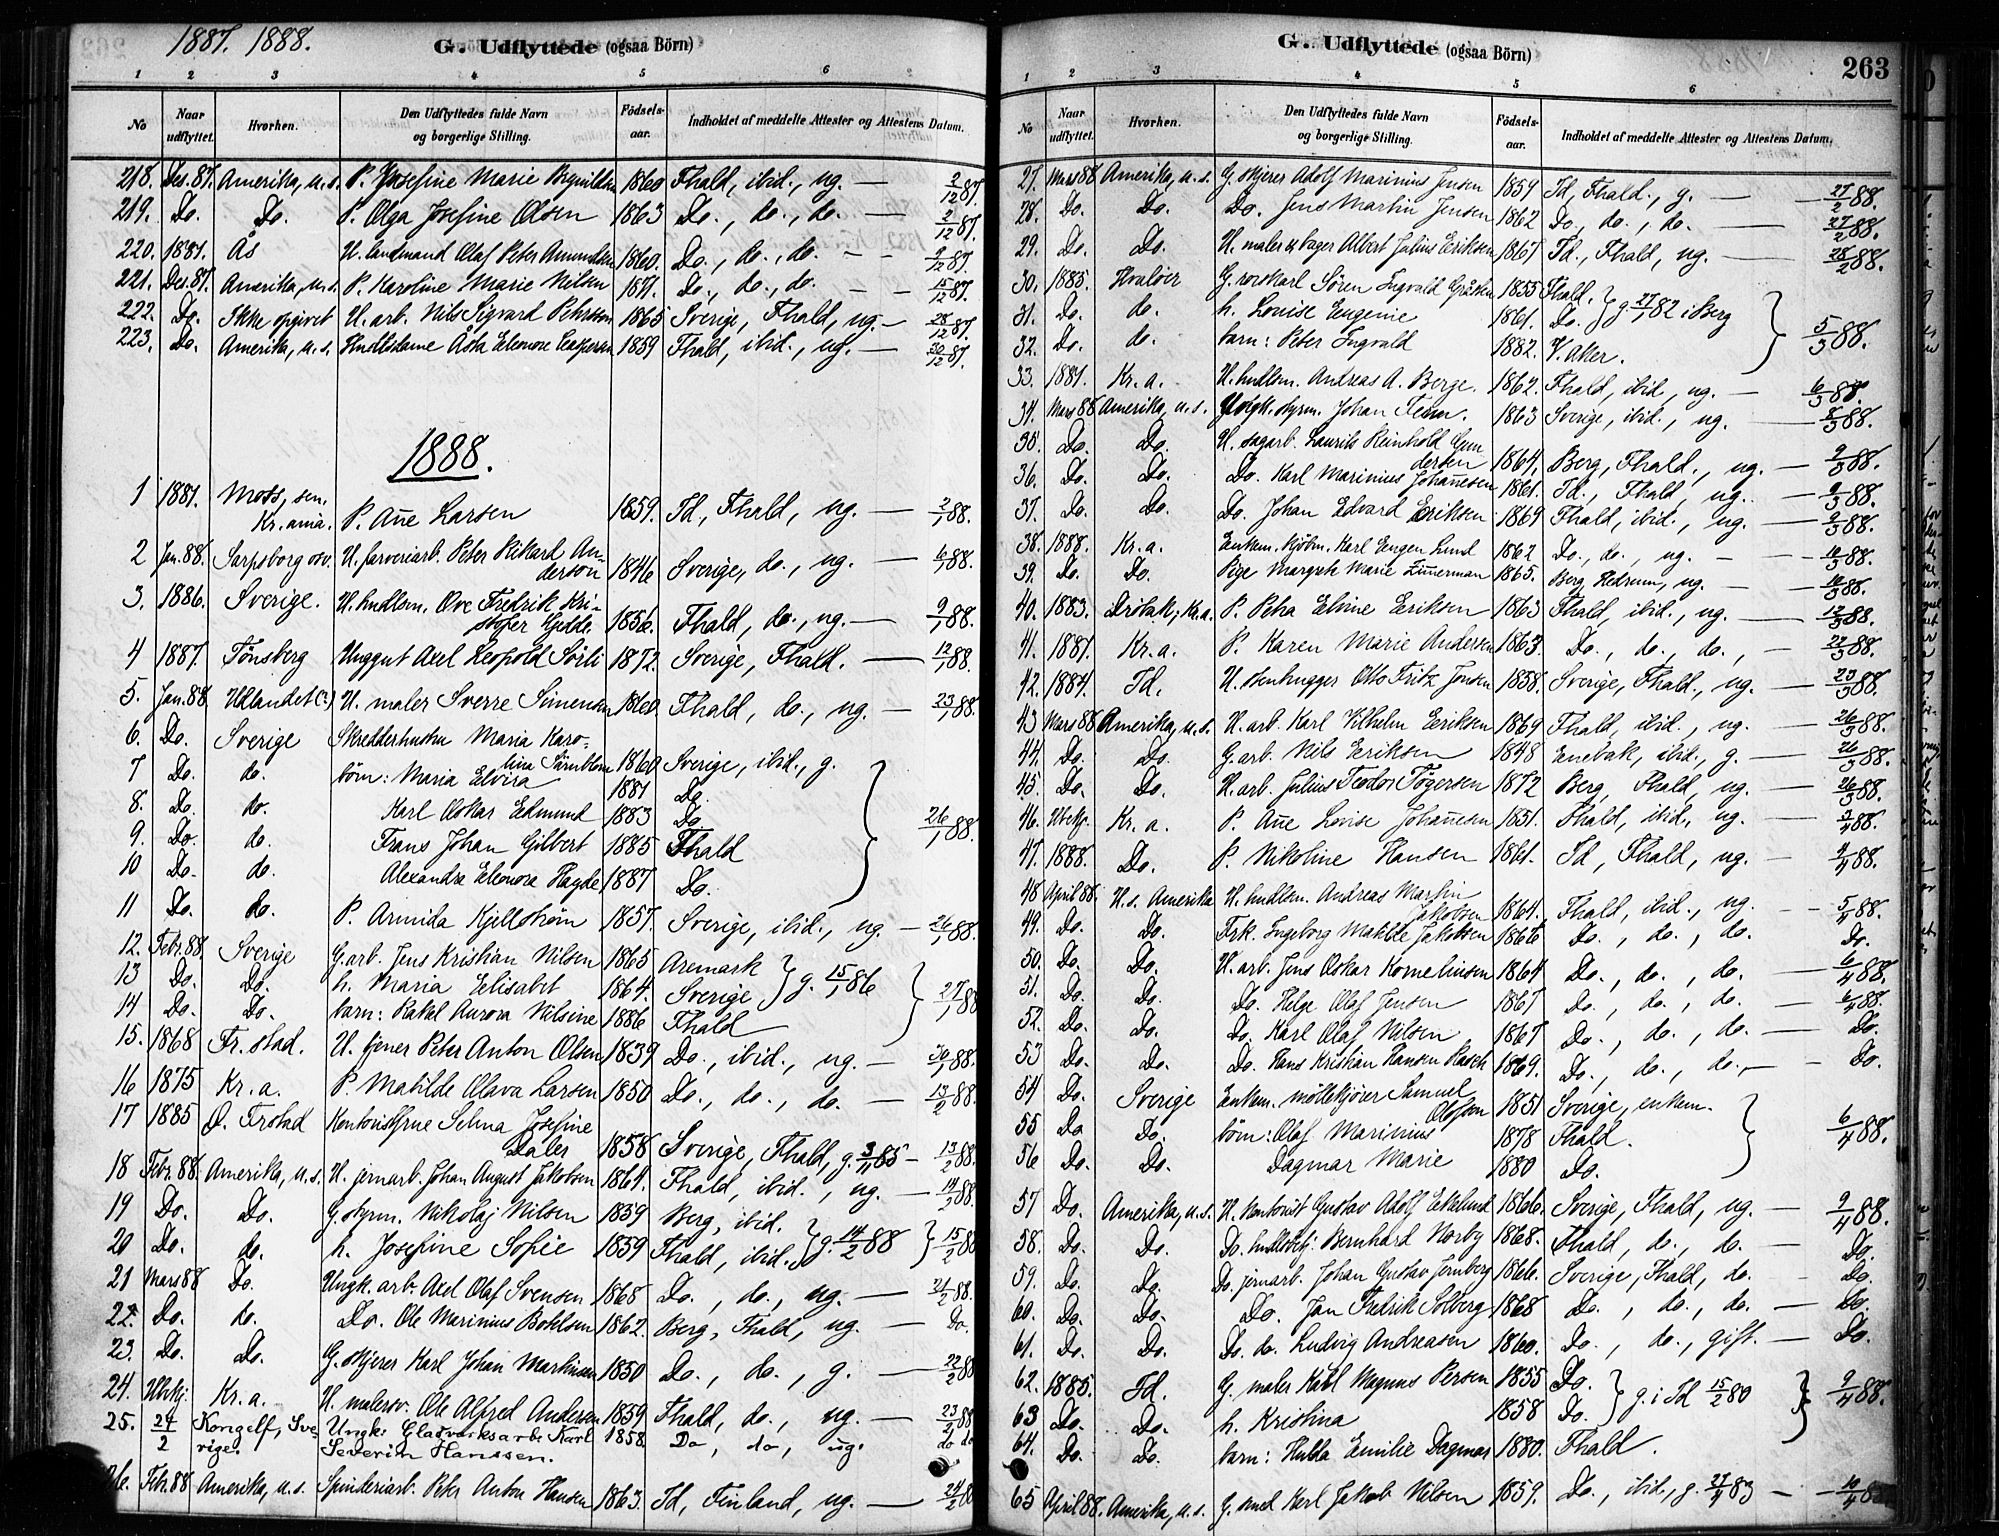 1887. 1888.
G. Udflyttede (ogsaa Börn)
1 2 3 4 5 6
No Naar udflyttet. Hvorhen. Den Udflyttedes fulde Navn og borgerlige Stilling. Födsels-aar. Indholdet af meddelte Attester og Attestens Datum.
218. Des. 87. Amerika, u. s. P. Josefine Marie 1860 Fhald, ibid., ug. — 2/12 87.
219. Do. Do. P. Olga Josefine Olsen 1863 Do., do., do. — 2/12 87.
220. 1887. Ås U. landmand Olaf Peter Amundsen 1860. Do., do., do. — 9/12 87.
221. Des. 87. Amerika, u. s. P. Karoline Marie Nilsen Do., do., do. — 15/12 87.
222. Do. Ikke opgivet U. arb. Nils Sigvard 1865 Sverige, Fhald, ug. — 28/12 87.
223. Do. Amerika, u. s. Åsta Eleonore 1859 Fhald, ibid., ug. — 30/12 87.
1888.
1 1887. Moss, sen. Kr.ania. P. Ane Larsen 1859. Id, Fhald, ug. — 2/1 88.
2 Jan. 88. Sarpsborg osv. U. farveriarb. Peter Rikard An-
derson 1846 Sverige, do., ug. — 6/1 88.
3. 1886. Sverige. U. hndlsm. Ove Fredrik Kri-
stofer Gjedde. 1856. Fhald, do., ug. — 9/1 88.
4 1887. Tönsberg Unggut Axel Leopold Sörli 1872. Sverige, Fhald. — 12/1 88.
5. Jan. 88. Udlandet (?) U. maler Sverre Simensen 1860. Fhald, do., ug. — 23/1 88.
6. Do. Sverige Skredderhustru Maria Karo-
lina 1860 Sverige, ibid., g.
7 Do. do. börn: Maria Elvira 1881 Do.
8. Do. do. Karl Oskar Edmund 1883 Do.
9. Do. do. Frans Johan Gilbert 1885 Fhald } 26/1 88.
10 Do. do. Alexandra Eleonora 1887 Do.
11 Do. do. P. Armida Kjellström 1857. Sverige, ibid., ug. — 26/1 88.
12. Febr. 88. Sverige G. arb. Jens Kristian Nilsen 1865 Aremark
13 Do. Do. h. Maria Elisabet 1864. Sverige } g. 15/1 86 } 27/1 88
14 Do. Do. barn: Rakel Aurora Nilsine 1886 Fhald
15. 1868 Fr.stad. U. tjener Peter Anton Olsen 1839 Do., ibid., ug. — 30/1 88.
16 1875 Kr. a. P. Matilde Olava Larsen 1850 Do., do., do. — 13/2 88.
17 1885 Ö. Frstad Kontoristfrue Selma Josefine
Daler 1858 Sverige, Fhald, g. 85 — 13/2 88.
18 Febr. 88. Amerika, u. s. U. jernarb. Johan August Jakobsen 1864. Fhald, ibid., ug. — 14/2 88.
19 Do. Do. G. styrm. Nikolaj Nilsen 1859 Berg, ibid.
20 Do. do. h. Josefine Sofie 1859 Fhald, ibid. } g. 14/2 88 } 15/2 88
21 Mars 88 Do. Ungk. arb. Axel Olaf Svensen 1865 Do., do., ug. — 21/2 88.
22. Do. do. Do. Ole Marinius 1862. Berg, Fhald, ug. — Do.
23. Do. Do. G. skjerer Karl Johan Martinsen 1850 Do., do., g. — 22/2 88
24. Kr. a. U. malersv. Ole Alfred Andersen 1859 Fhald, do., ug. — 23/2 88
25. 24/2 Kongelf, Sve-
rige. Ungk. Glasværksarb. Karl
Severin Hanssen. 1858. Do, do, ug. do do
26. Febr. 88 Amerika, u. s. Spinderiarb. Peter Anton Hansen 1863. Id, Finland, ug. — 24/2 88
G. Udflyttede (ogsaa Börn)
263
1 2 3 4 5 6
No Naar udflyttet. Hvorhen. Den Udflyttedes fulde Navn og borgerlige Stilling. Födsels-aar. Indholdet af meddelte Attester og Attestens Datum.
27. Mars 88 Amerika, u. s. G. skjerer Adolf Marinius Jensen 1859 Id, Fhald., g. — 27/2 88.
28. Do. Do. Do. Jens Martin Jensen 1862 Do., do., do. — 27/2 88.
29. Do. Do. U. maler & bager Albert Julius Eriksen 1867 Id., Fhald, ug. — 28/2 88.
30. 1885. Hvalöer G. rorskarl Sören Ingvald 1855 Fhald.
31. Do. do. h. Louise Eugenie 1861. Do. } g. 27/1 82 i Berg } 5/3 88.
32. Do. do. barn: Peter Ingvald 1882. V. Aker.
33. 1887. Kr. a. U. hndlsm. Andreas A. Berge. 1862. Fhald, ibid, ug. — 6/3 88.
34. Mars 88 Amerika, u. s. Ungk. styrm. Johan 1863 Sverige, ibid., ug. — 8/3 88.
35. Do. Do. U. sagarb. Laurits Reinhold Gun-
dersen 1864, Berg, Fhald., ug. — 9/3 88.
36. Do. Do. Do. Karl Marinius Johannesen 1861. Id., Fhald, ug. — 9/3 88.
37. Do. Do. Do. Johan Edvard Eriksen 1869 Fhald, ibid., ug. — 9/3 88.
38. 1888. Kr. a. Enkem. kjöbm. Karl Eugen Lund 1862 Do., do., ug. — 10/3 88.
39. Do. Do. Pige Margrete Marie Zimmerman 1865. Berg, Hedrum, ug. — 10/3 88.
40. 1883. Dröbak, Kr. a. P. Petra Elvine Eriksen 1863 Fhald, ibid., ug. — 12/3 88.
41. 1887. Kr. a. P. Karen Marie Andersen 1863. Do., do., do., — 22/3 88.
42. 1884. Id. U. stenhugger Otto Fritz Jensen 1858. Sverige, Fhald., ug. — 23/3 88.
43 Mars 88 Amerika, u. s. U. arb. Karl Vilhelm Eriksen 1869 Fhald, ibid., ug. — 26/3 88.
44. Do. Do. G. arb. Nils Eriksen 1848 Enebak, ibid., g. — 26/3 88.
45. Do. Do. U. arb. Julius Teodor Tögersen 1872 Berg, Fhald, ug. — 26/3 88.
46. Ubekj. Kr. a. P. Ane Lovise Johannesen 1851. Fhald, ibid., ug. — 3/4 88.
47. 1888. Do. P. Nikoline Hansen 1861. Id, Fhald, ug. — 4/4 88.
48 April 88. U. s. Amerika U. hndlsm. Andreas Martin
Jakobsen 1864. Fhald, ibid., ug. — 5/4 88.
49. Do. Do. Frk. Ingeborg Matilde Jakobsen 1866 Do., do., do. Do.
50. Do. Do. U. arb. Jens Oskar Korneliusen 1864 Do., do., do. — 6/4 88.
51. Do. Do. Do. Helge Olaf Jensen 1867 Do., do., do. — 6/4 88.
52. Do. Do. Do. Karl Olaf Nilsen 1867 Do., do., do. — Do.
53 Do. Do. Do. Hans Kristian Hansen Rasch 1869. Do., do., do. — Do.
54 Do. Sverige Enkem. möllekjörer Samuel
Olofsson 1851 Sverige, enkem.
55 Do Do. börn: Olaf Marinius 1878 Fhald. } 6/4 88.
56 Do. Do. Dagmar Marie 1880 Do.
57 Do. Amerika, u. s. U. kontorist Gustav Adolf Ekelund 1866. Sverige, Fhald, ug. — 9/4 88.
58. Do. Do. Do. hndlsbetj. Bernhard Norby 1868. Fhald, do., do. — Do.
59. Do. Do. Do. jernarb. Johan Gustav Jernberg 1866. Sverige, Fhald, do. — Do.
60. Do. Do. Do. Jan Fredrik Solberg 1868 Do., do., do. — Do.
61. Do. Do. Do. do. Ludvig Andreasen 1860. Do., do., gift. — Do.
62. 1885. Id. G. maler Karl Magnus Persen 1855 Do.
63 Do. Do. h. Kristina 1858 Do. } g. i Id 15/2 80 } 9/4 88.
64. Do. Do. barn: Hulda Emilie Dagmar 1880. Fhald.
65 April 88. Amerika, u. s. G. smed Karl Jakob Nilsen 1859. Do., ibid., g. 83 — 10/4 88